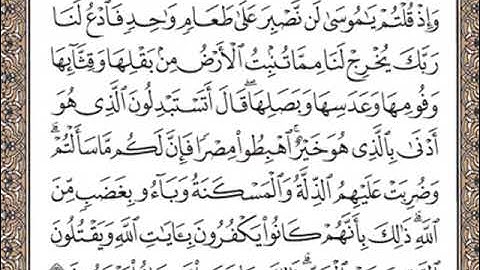 وَإِذْ قُلْتُمْ يَٰمُوسَىٰ لَن نَّصْبِرَ عَلَىٰ طَعَامٍ وَٰحِدٍ فَٱدْعُ لَنَا
رَبَّكَ يُخْرِجْ لَنَا مِمَّا تُنۢبِتُ ٱلْأَرْضُ مِنۢ بَقْلِهَا وَقِثَّآئِهَا
وَفُومِهَا وَعَدَسِهَا وَبَصَلِهَا ۖ قَالَ أَتَسْتَبْدِلُونَ ٱلَّذِى هُوَ
أَدْنَىٰ بِٱلَّذِى هُوَ خَيْرٌ ۚ ٱهْبِطُوا۟ مِصْرًا فَإِنَّ لَكُم مَّا سَأَلْتُمْ ۗ
وَضُرِبَتْ عَلَيْهِمُ ٱلذِّلَّةُ وَٱلْمَسْكَنَةُ وَبَآءُو بِغَضَبٍ مِّنَ
ٱللَّهِ ۗ ذَٰلِكَ بِأَنَّهُمْ كَانُوا۟ يَكْفُرُونَ بِـَٔايَٰتِ ٱللَّهِ وَيَقْتُلُونَ